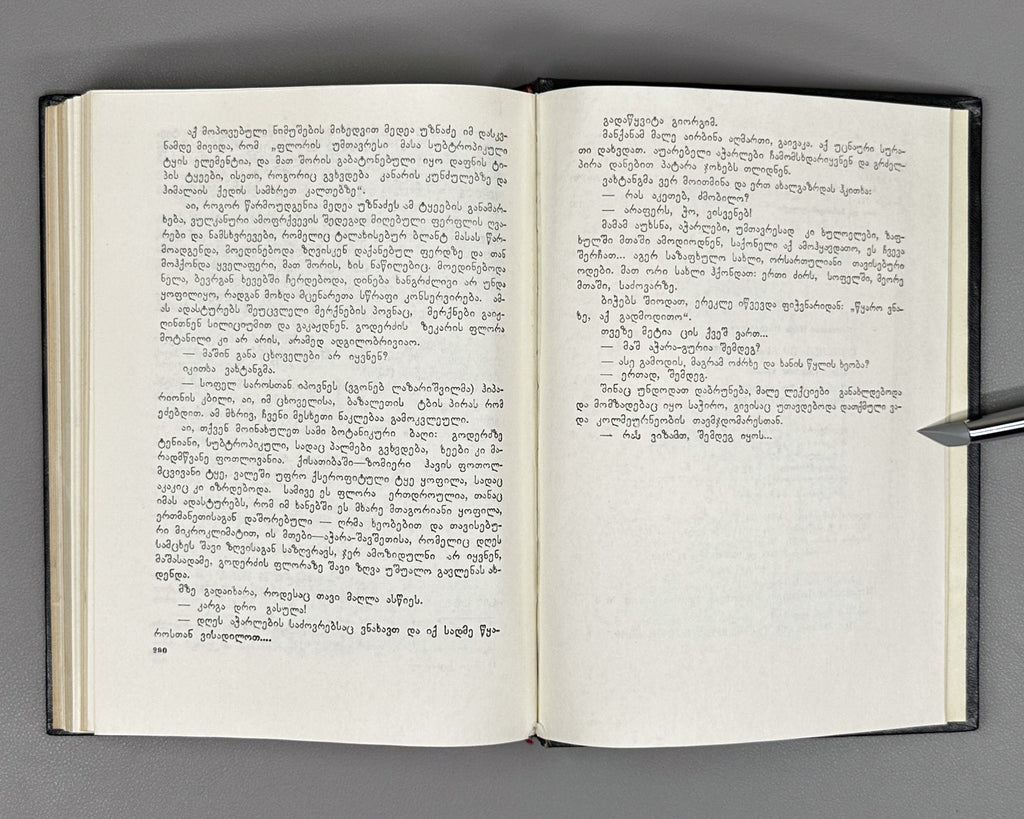 აქ მოპოვებული ნიმუშების მიხედვით მედეა უზნაძე იმ დასკვ-
ნამდე მივიდა, რომ „ფლორის უმთავრესი მასა სუბტროპიკული
ტყის ელემენტია, და მათ შორის გაბატონებული იყო დაფნის ტი-
პის ტყეები, ისეთი, როგორიც გვხვდება კანარის კუნძულებზე და
ჰიმალაის ქედის სამხრეთ კალთებზე“.
აი, როგორ წარმოუდგენია მედეა უზნაძეს ამ ტყეების განამარ-
ხება, ვულკანური ამოფრქვევის შედეგად მიღებული ფერფლის ღვა-
რები და ნამსხვრევები, რომელიც ტალახისებურ ბლანტ მასას წარ-
მოადგენდა, მოედინებოდა ზღვისკენ დაქანებულ ფერდზე და თან
მოჰქონდა ყველაფერი, მათ შორის, ხის ნაწილებიც. მოედინებოდა
ნელა, ბევრგან ხევებში ჩერდებოდა, დინება ხანგრძლივი არ უნდა
ყოფილიყო, რადგან მოხდა მცენარეთა სწრაფი კონსერვირება. ამ-
ას ადასტურებს შეუცვლელი მერქნების პოვნაც, მერქნები გაიჟ-
ღინთნენ სილიციუმით და გაკაჟდნენ. გოდერძის ზეკარის ფლორა
მოტანილი კი არ არის, არამედ ადგილობრივიაო.
— მაშინ განა ცხოველები არ იყვნენ?
იკითხა ვახტანგმა.
— სოფელ საროსთან იპოვნეს (ვგონებ ლაზარიშვილმა) ჰიპა-
რიონის კბილი, აი, იმ ცხოველისა, ბაზალეთის ტბის პირას რომ
ეძებდით. ამ მხრივ, ჩვენი მესხეთი ნაკლებაა გამოკვლეული.
აი, თქვენ მოინახულეთ სამი ბოტანიკური ბაღი: გოდერძზე
ტენიანი, სუბტროპიკული, სადაც პალმები გვხვდება, ხეები კი მა-
რადმწვანე ფოთლოვანია. ქისათიბაში—ზომიერი ჰავის ფოთოლ-
მცვივანი ტყე, ვალეში უფრო ქსეროფიტული ტყე ყოფილა, სადაც
აკაკიც კი იზრდებოდა. სამივე ეს ფლორა ერთდროულია, თანაც
იმას ადასტურებს, რომ იმ ხანებში ეს მხარე მთაგორიანი ყოფილა,
ერთმანეთისაგან დაშორებული — ღრმა ხეობებით და თავისებუ-
რი მიკროკლიმატით, ის მთები—აჭარა-შავშეთისა, რომელიც დღეს
სამცხეს შავი ზღვისაგან საზღვრავს, ჯერ ამოზიდულნი არ იყვნენ,
მაშასადამე, გოდერძის ფლორაზე შავი ზღვა უშუალო გავლენას ახ-
დენდა.
მზე გადაიხარა, როდესაც თავი მაღლა ასწიეს.
— კარგა დრო გასულა!
— დღეს აჭარლების საძოვრებსაც ვნახავთ და იქ სადმე წყა-
როსთან ვისადილოთ....
290
გადაწყვიტა გიორგიმ.
მანქანამ მალე აირბინა აღმართი, გაივაკა. აქ უცნაური სურა-
თი დახვდათ. აუარებელი აჭარლები ჩამომსხდარიყვნენ და გრძელ-
პირა დანებით პატარა ჯოხებს თლიდნენ.
ვახტანგმა ვერ მოითმინა და ერთ ახალგაზრდას ჰკითხა:
— რას აკეთებ, ძმობილო?
— არაფერს, ჰო, ვისვენებ!
მამამ აუხსნა, აჭარლები, უმთავრესად კი ხულოელები, ზაფ-
ხულში მთაში ამოდიოდნენ, საქონელი აქ ამოჰყავდათო, ეს ჩვევა
შერჩათ... აგერ საზაფხულო სახლი, ორსართულიანი თავისებური
ოდები. მათ ორი სახლი ჰქონდათ: ერთი ძირს, სოფელში, მეორე
მთაში, საძოვარზე.
ბიჭებს შიოდათ, ერეკლე იწვევდა ფიჭვნარიდან: „წყარო ვნა-
ხე, აქ გადმოდითო“.
თვეზე მეტია ცის ქვეშ ვართ...
— მაშ აჭარა-გურია შემდეგ?
— ასე გამოდის, მაგრამ ოძრხე და ხანის წყლის ხეობა?
— ერთად, შემდეგ.
შინაც უნდოდათ დაბრუნება, მალე ლექციები განახლდებოდა
და მომზადებაც იყო საჭირო, გივისაც უთავდებოდა დათქმული ვა-
და კოლმეურნეობის თავმჯდომარესთან.
— რას ვიზამთ, შემდეგ იყოს...